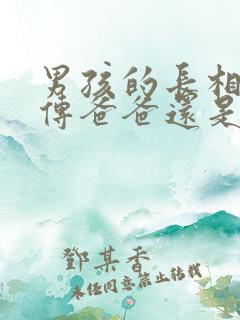 男孩的長相
傳爸爸還是
鄧某香
未经同意禁止转载